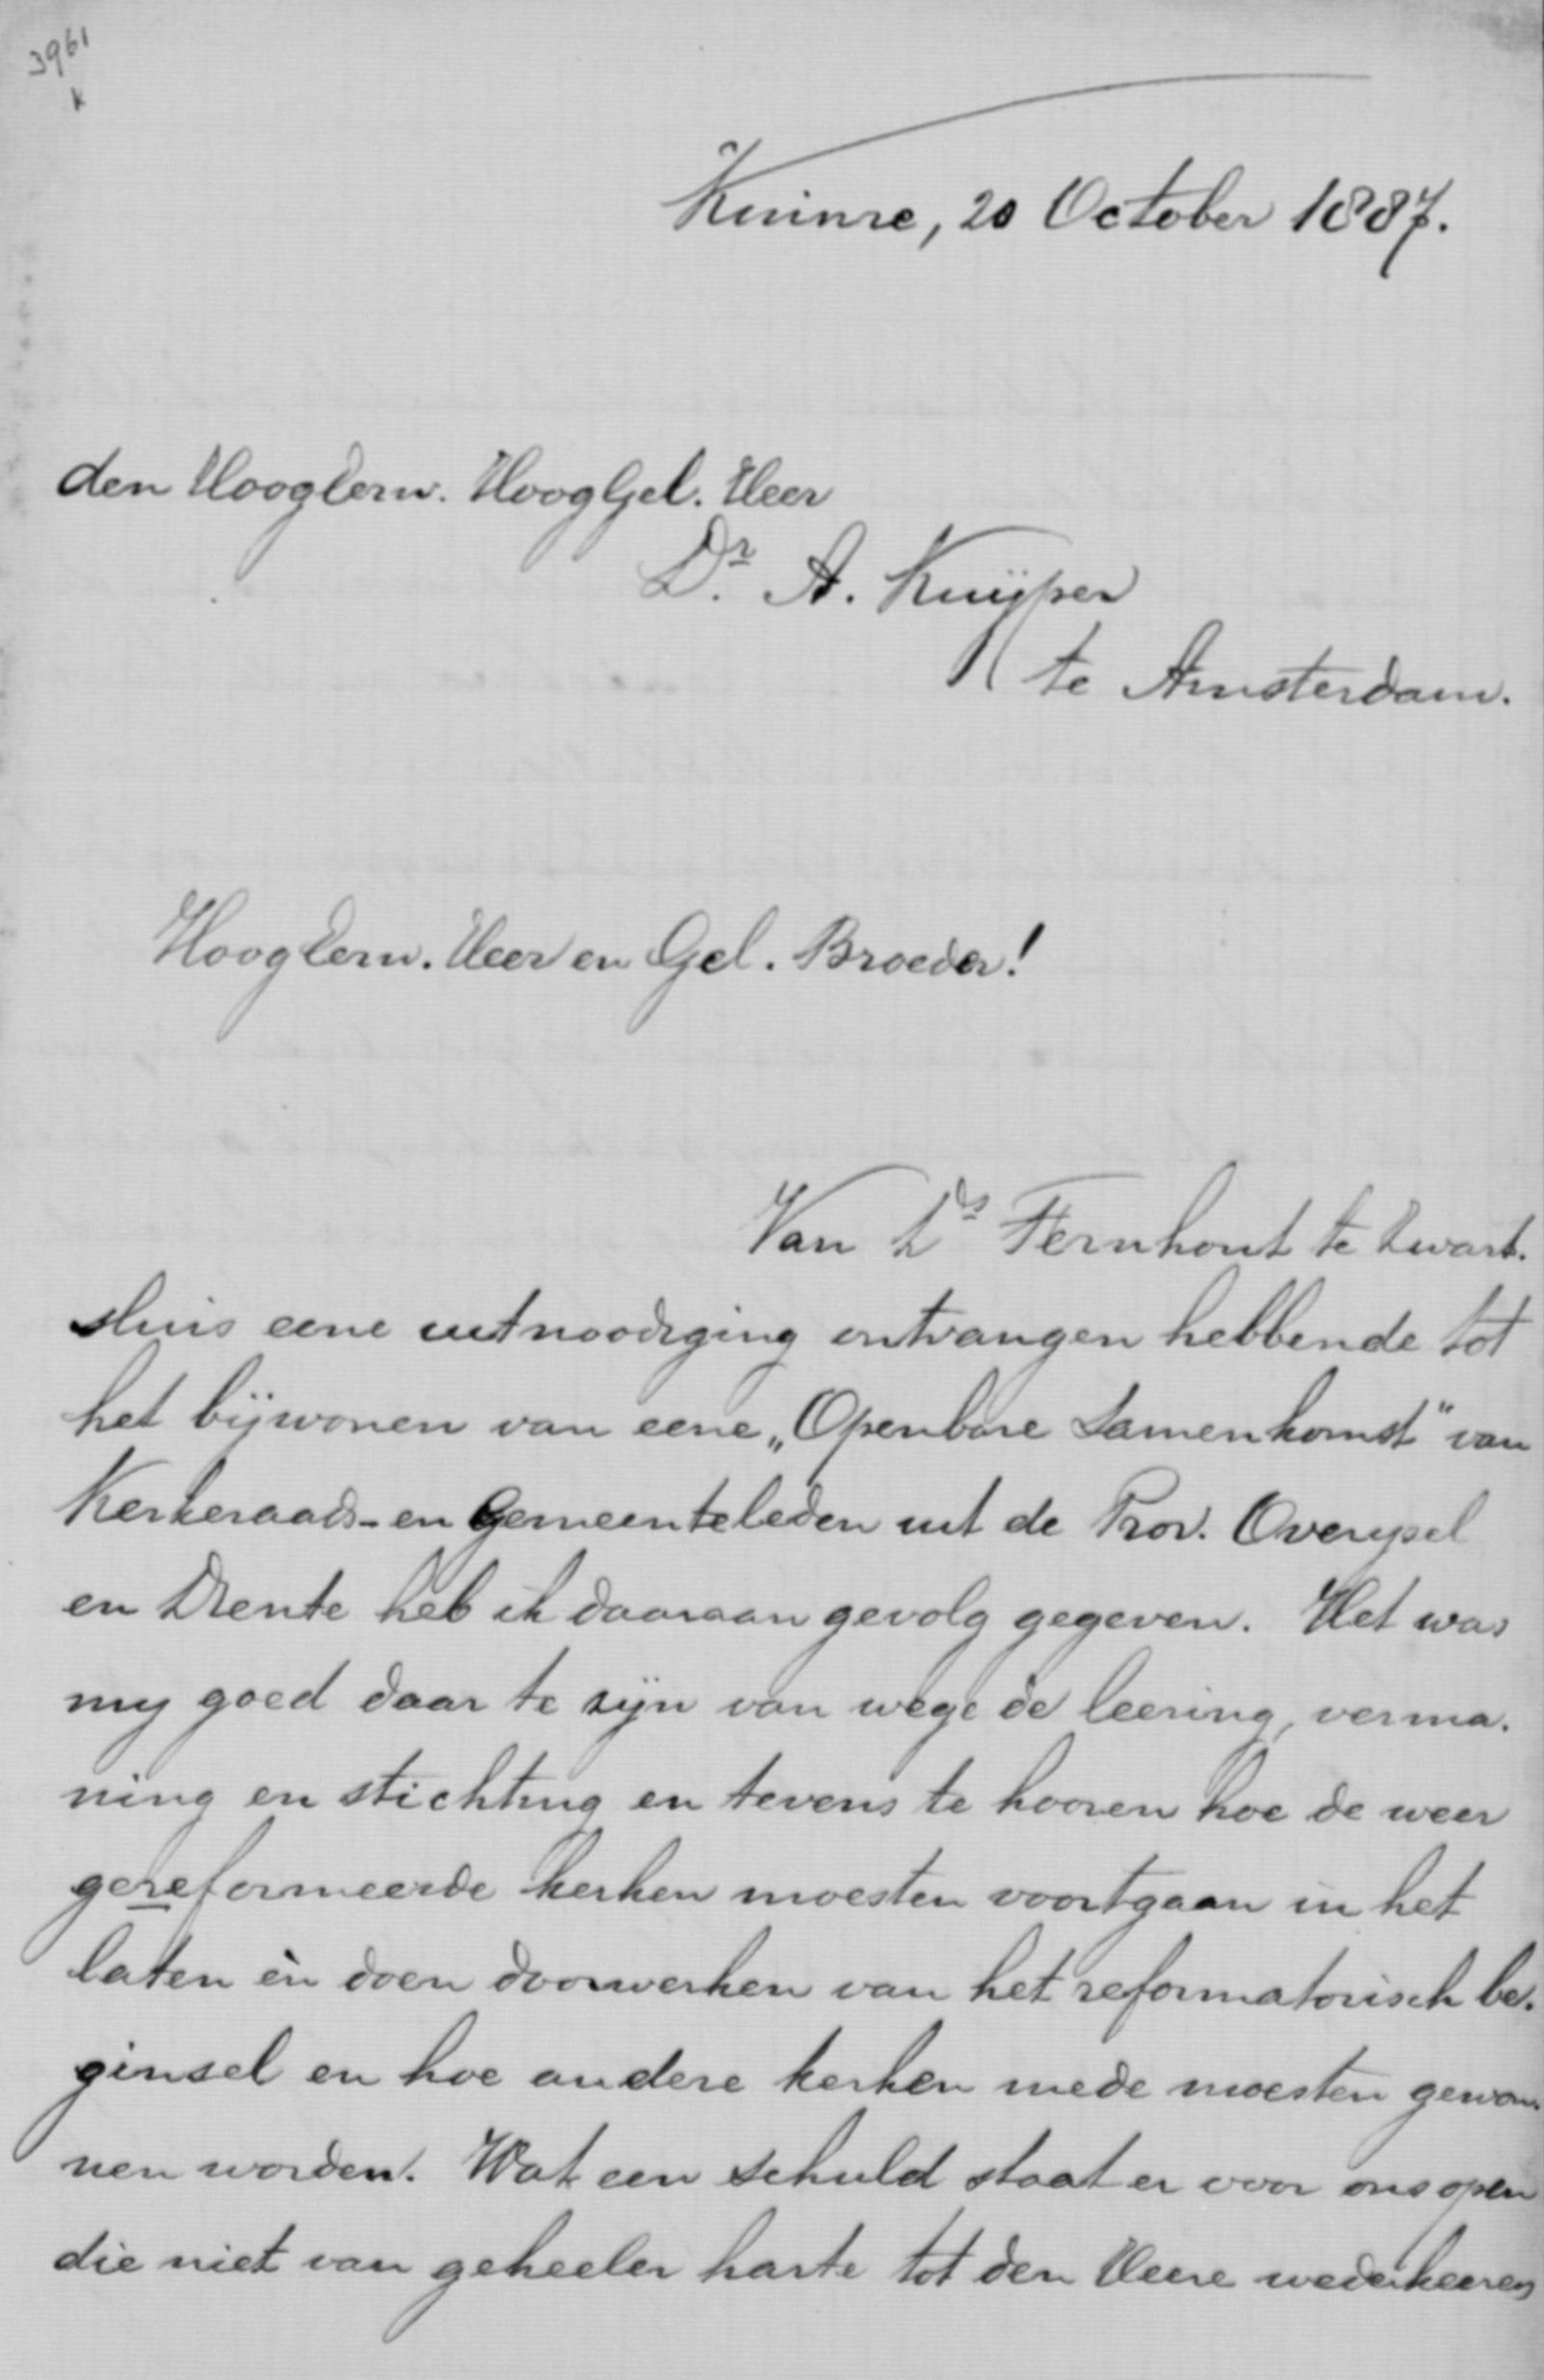 3961
k
Kuinre, 20 October 1887.
den HoogEerw. HoogGel. Heer
Dr. A. Kuÿper
te Amsterdam.
HoogEerw. Heer en Gel. Broeder!
Van Ds Fernhout te Zwart-
sluis eene uitnoodiging ontvangen hebbende tot
het bijwonen van eene „Openbare Samenkomst" van
Kerkeraads- en Gemeenteleden uit de Prov. Overijsel
en Drente heb ik daaraan gevolg gegeven. Het was
mij goed daar te zijn van wege de leering, verma-
ning en stichting en tevens te hooren hoe de weer
gereformeerde kerken moesten voortgaan in het
laten èn doen doorwerken van het reformatorisch be-
ginsel en hoe andere kerken mede moesten gewon-
nen worden. Wat een schuld staat er voor ons open
die niet van geheeler harte tot den Heere wederkeeren